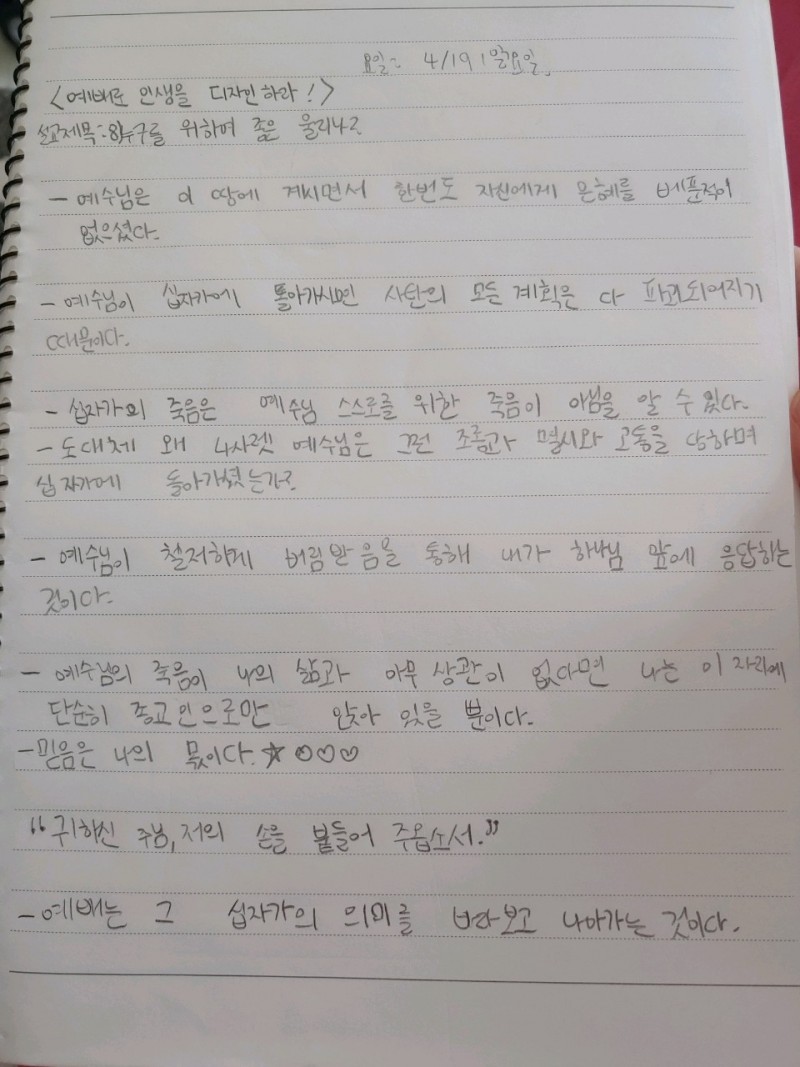 요일: 4/19 일요일.
<예배로 인생을 디자인하라!>
설교제목: 8) 누구를 위하여 종은 울리나?
- 예수님은 이 땅에 계시면서 한번도 자신에게 은혜를 베푼적이
없으셨다.
- 예수님이 십자가에 돌아가시면 사단의 모든 계획은 다 파괴되어지기
때문이다.
- 십자가의 죽음은 예수님 스스로를 위한 죽음이 아님을 알 수 있다.
- 도대체 왜 나사렛 예수님은 그런 조롱과 멸시와 고통을 당하며
십자가에 돌아가셨는가?
- 예수님이 철저하게 버림받음을 통해 내가 하나님 앞에 응답하는
것이다.
- 예수님의 죽음이 나의 삶과 아무 상관이 없다면 나는 이 자리에
단순히 종교인으로만 앉아 있을 뿐이다.
- 믿음은 나의 몫이다. ☆♡♡♡
"귀하신 주님, 저의 손을 붙들어 주옵소서."
- 예배는 그 십자가의 의미를 바라보고 나아가는 것이다.